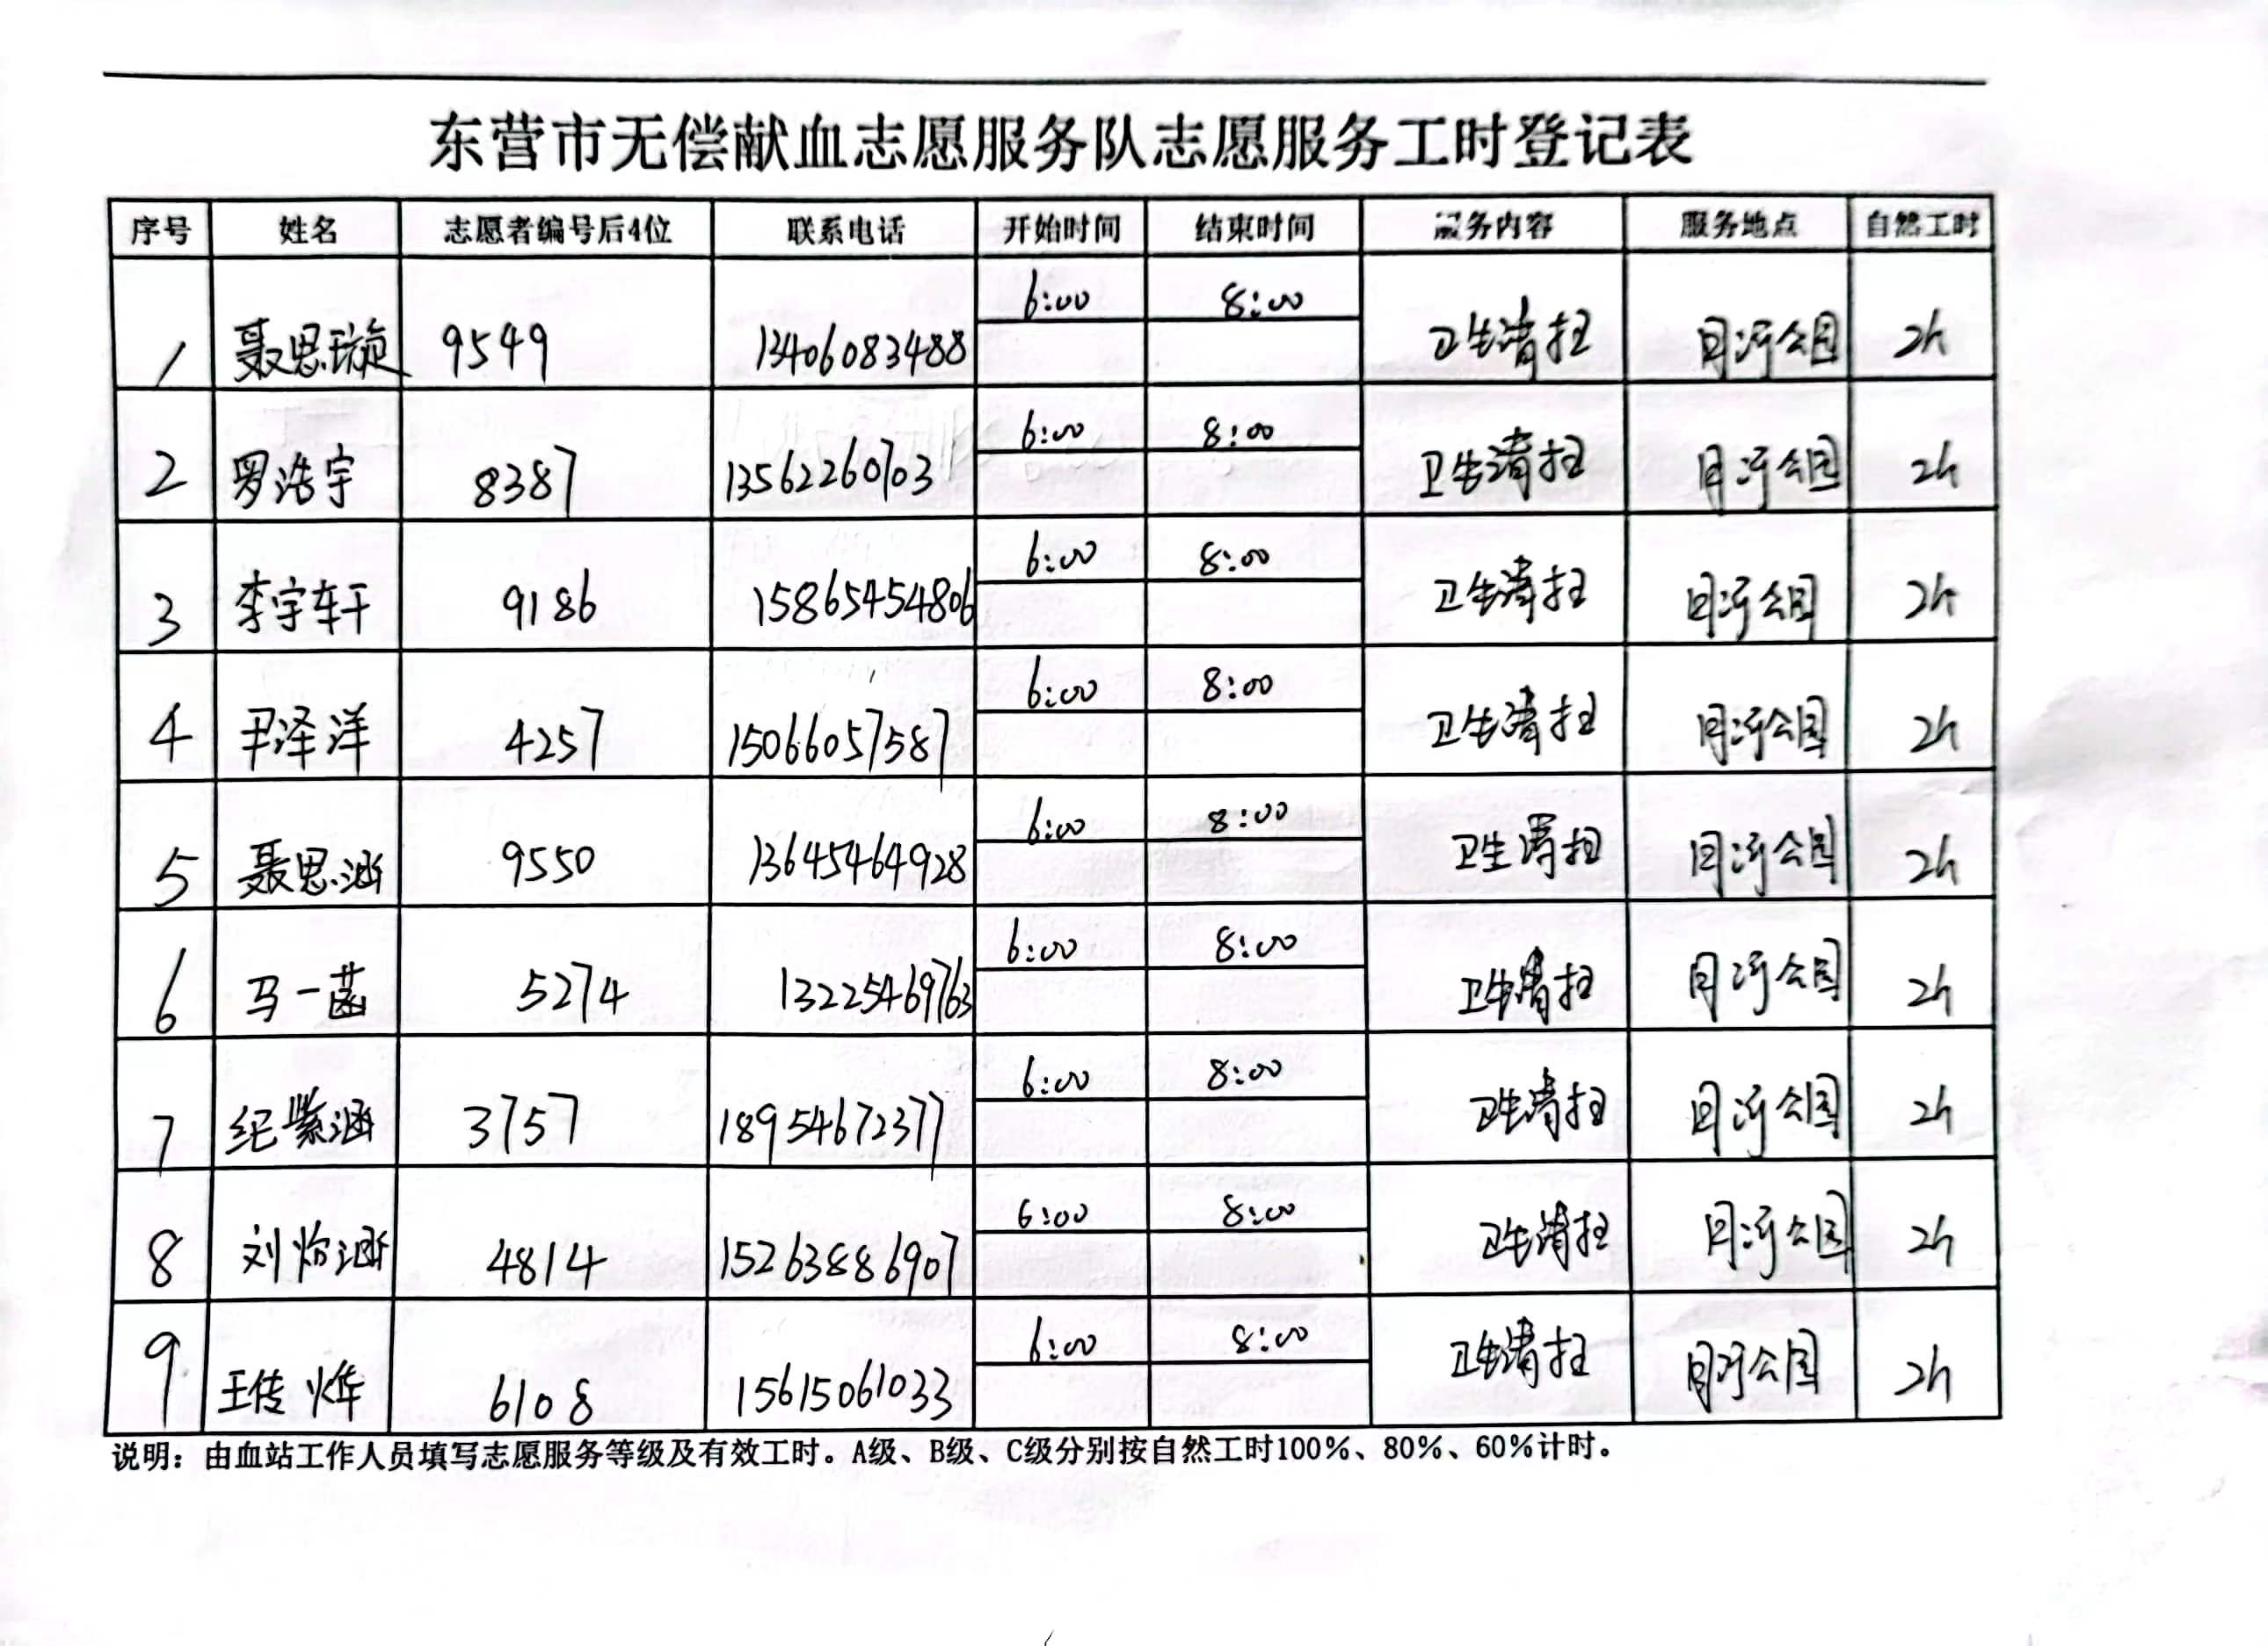 东营市无偿献血志愿服务队志愿服务工时登记表
序号 姓名 志愿者编号后4位 联系电话 开始时间 结束时间 服务内容 服务地点 自然工时
1 聂思璇 9549 13406083488 6:00 8:00 卫生清扫 月河公园 2h
2 罗浩宇 8387 13562260703 6:00 8:00 卫生清扫 月河公园 2h
3 李宇轩 9186 15865454806 6:00 8:00 卫生清扫 月河公园 2h
4 尹泽洋 4257 15066057587 6:00 8:00 卫生清扫 月河公园 2h
5 聂思涵 9550 13645464928 6:00 8:00 卫生清扫 月河公园 2h
6 马一菡 5274 13225469763 6:00 8:00 卫生清扫 月河公园 2h
7 纪紫涵 3757 18954672377 6:00 8:00 卫生清扫 月河公园 2h
8 刘怡涵 4814 15263886907 6:00 8:00 卫生清扫 月河公园 2h
9 王传烨 6108 15615061033 6:00 8:00 卫生清扫 月河公园 2h
说明：由血站工作人员填写志愿服务等级及有效工时。A级、B级、C级分别按自然工时100%、80%、60%计时。